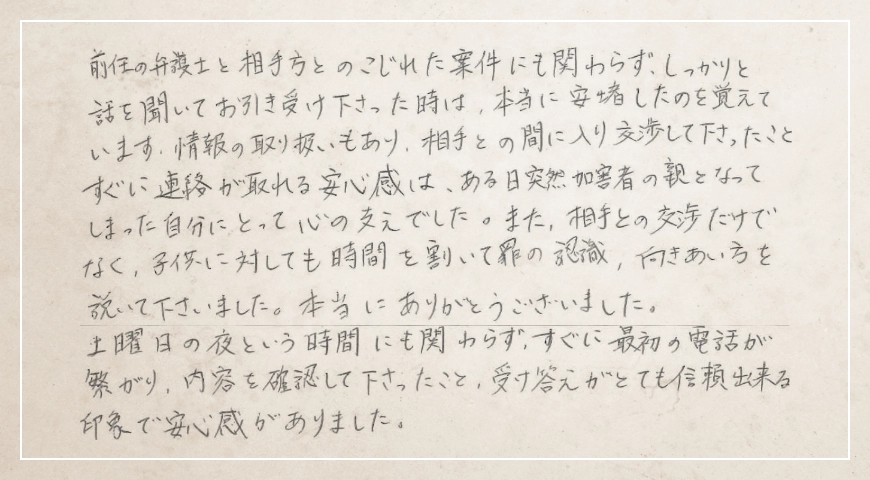 前任の弁護士と相手方とのこじれた案件にも関わらず、しっかりと
話を聞いてお引き受け下さった時は、本当に安堵したのを覚えて
います。情報の取り扱いもあり、相手との間に入り交渉して下さったこと
すぐに連絡が取れる安心感は、ある日突然加害者の親となって
しまった自分にとって心の支えでした。また、相手との交渉だけで
なく、子供に対しても時間を割いて罪の認識、向きあい方を
説いて下さいました。本当にありがとうございました。
土曜日の夜という時間にも関わらず、すぐに最初の電話が
繋がり、内容を確認して下さったこと、受け答えがとても信頼出来る
印象で安心感がありました。